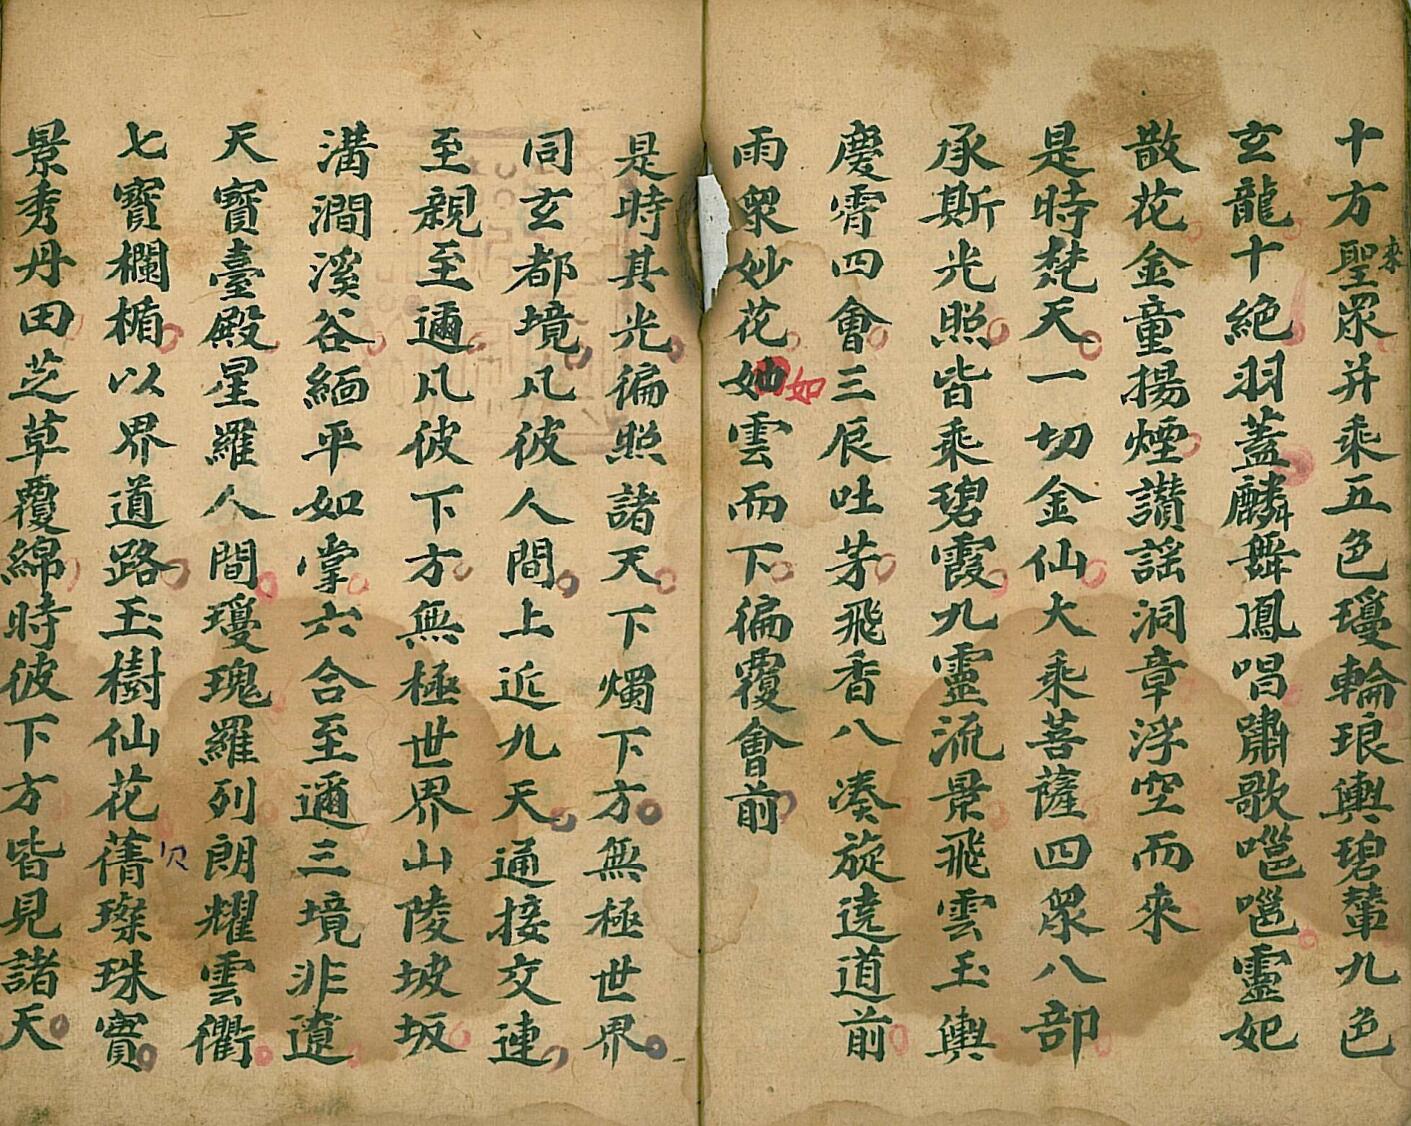 十方來聖眾并乘五色瓊輪琅輿碧輦九色
玄龍十絕羽蓋麟舞鳳唱嘯歌嗈嗈靈妃
散花金童揚煙讚謠洞章浮空而來
是時梵天一切金仙大乘菩薩四眾八部
承斯光照皆乘碧霞九靈流景飛雲玉輿
慶霄四會三辰吐芳飛香八湊旋遶道前
雨眾妙花如雲而下徧覆會前
是時其光徧照諸天下燭下方無極世界
同玄都境凡彼人間上近九天通接交連
至親至邇凡彼下方無極世界山陵坡坂
溝澗溪谷緬平如掌六合至邇三境非遼
天寶臺殿星羅人間瓊瑰羅列朗耀雲衢
七寶欄楯以界道路玉樹仙花蒨璨珠實
景秀丹田芝草覆綿時彼下方皆見諸天